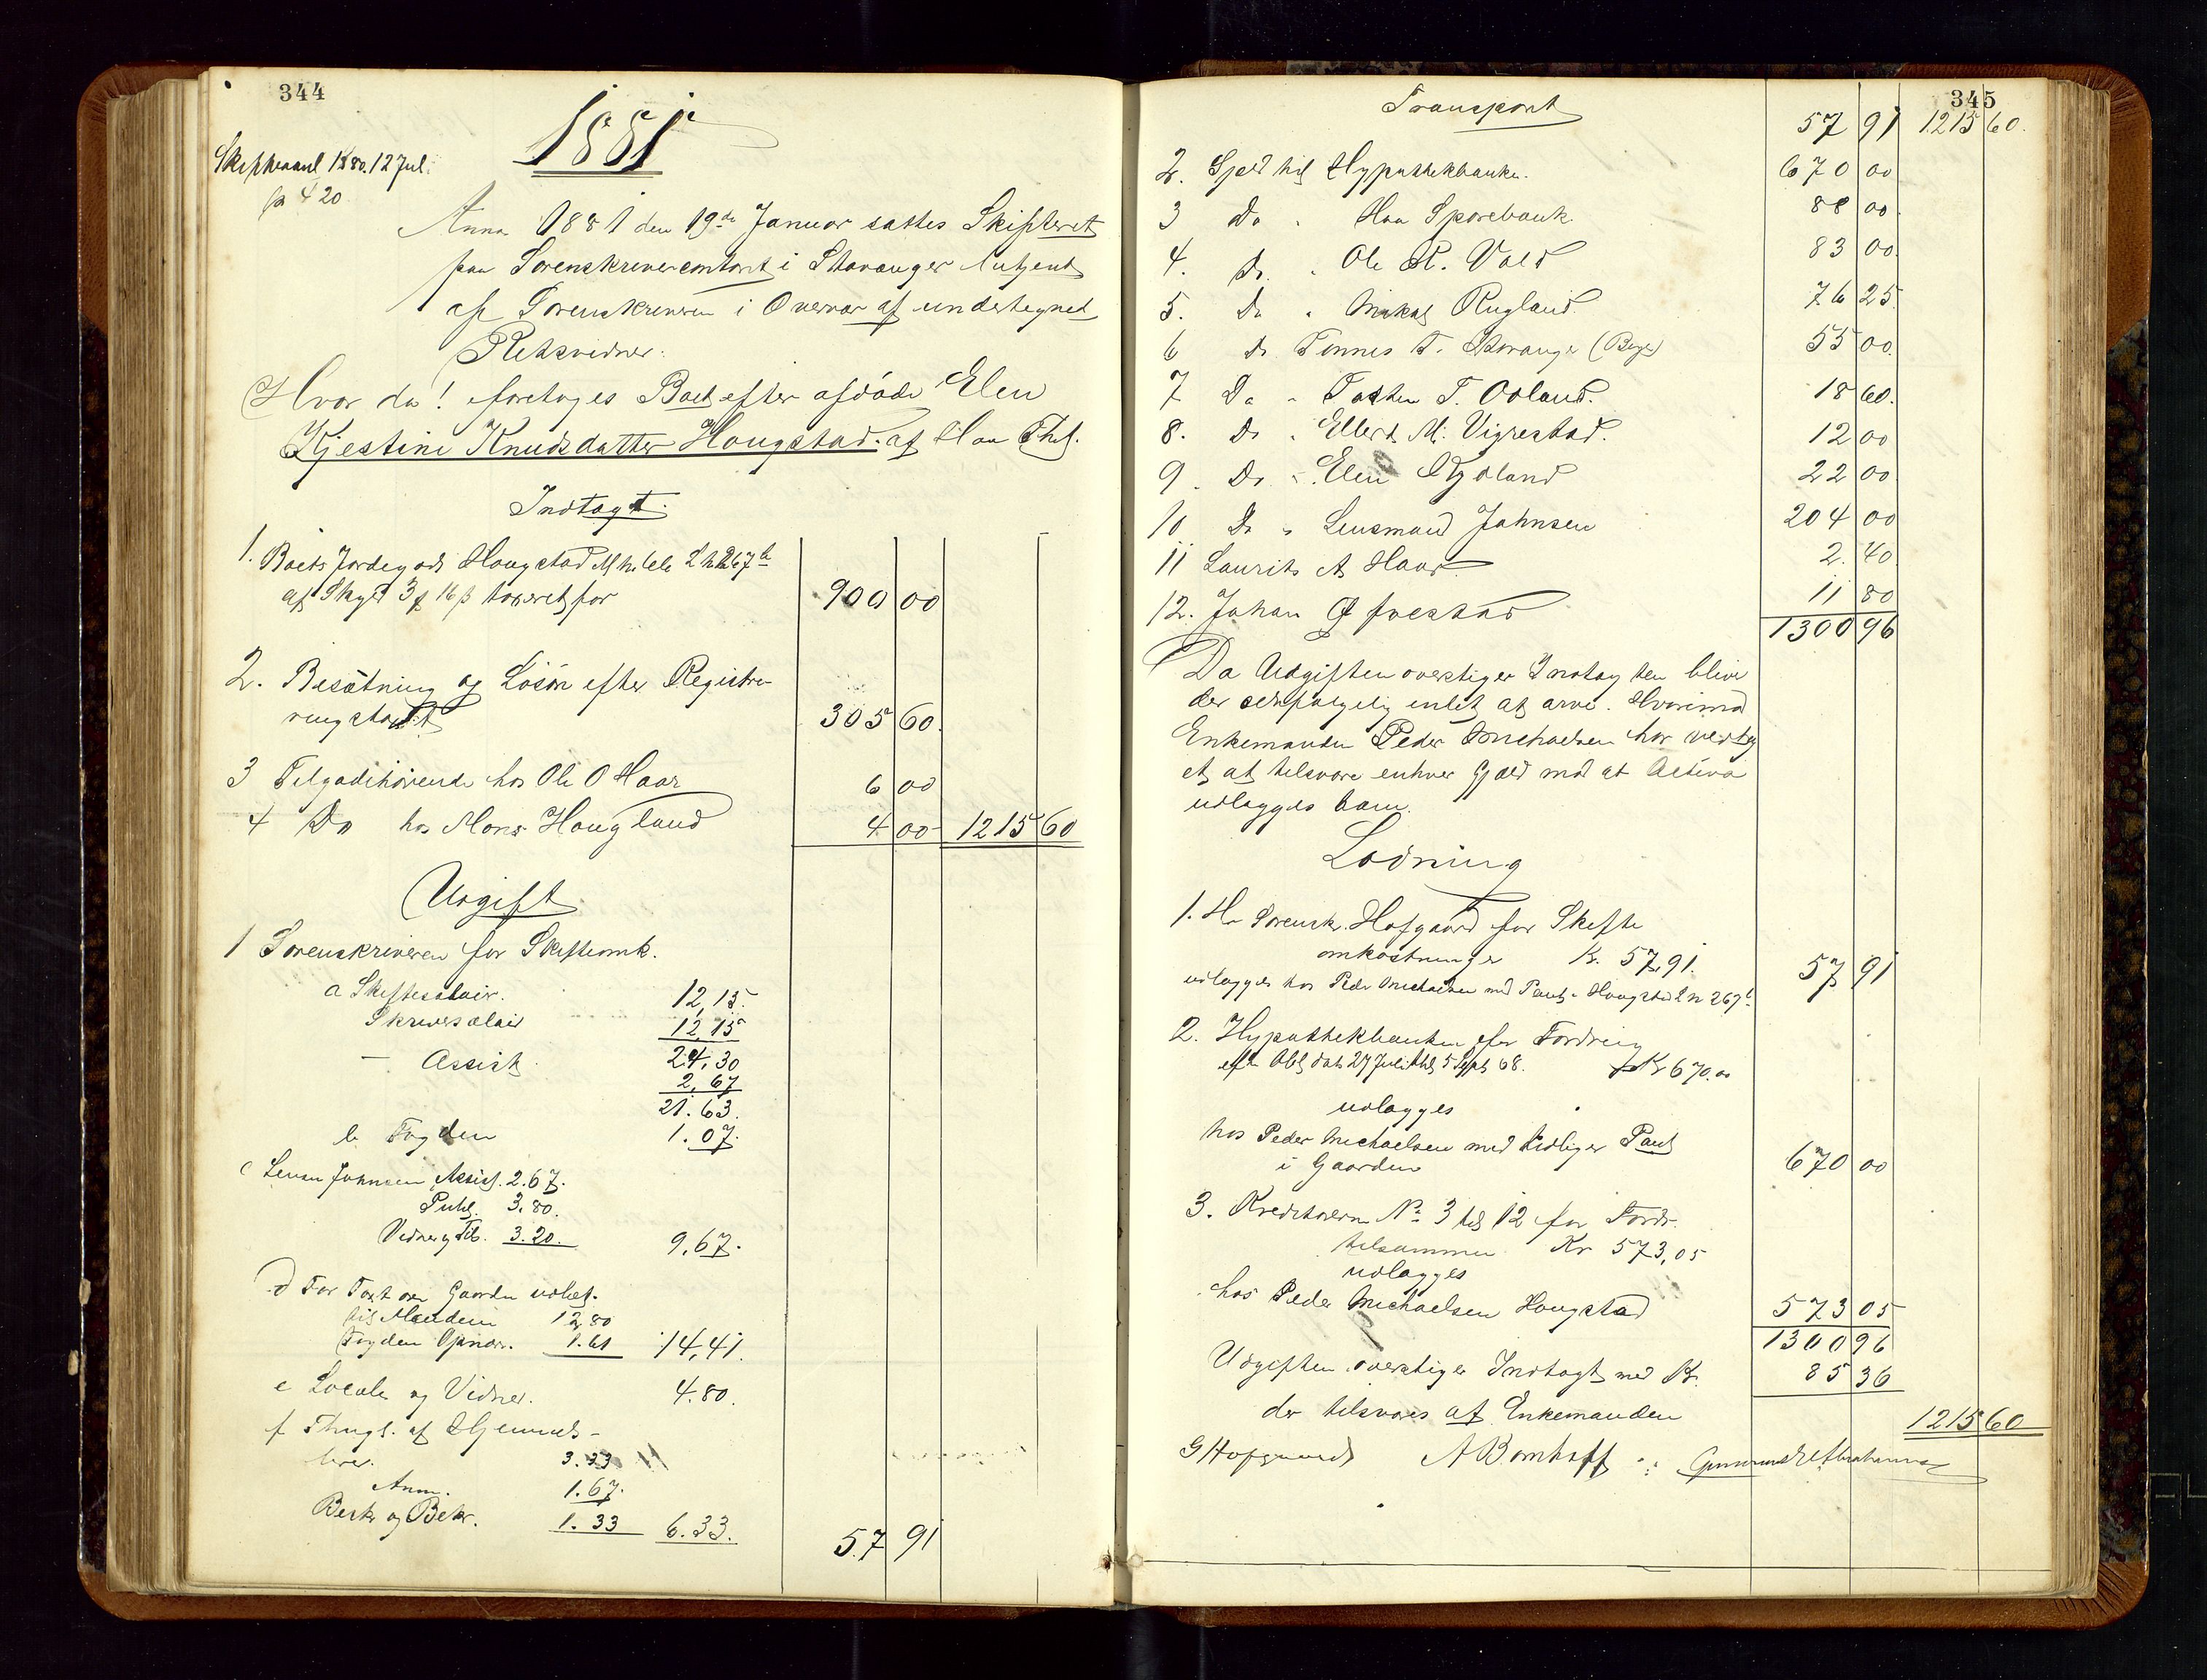 344
1881
Skiftesaml 1880. 12 Jul.
fo 420
Anno 1881 den 19de Januar sattes Skifteret
paa Sorenskrivercontoret i Stavanger betjent
af Sorenskriveren i Overvær af undertegned
Retsvidner.
Hvor da! foretoges Boet efter afdøde Elen
Kjestine Knudsdatter Hougstad af Haa Thgl.
Indtægt.
1. Boets Jordegods Hougstad M N Lb 267b
af Skyld 3 16 taxeret for 900 00
2. Besætning og Løsøre efter Registre-
ringstaxt 305 60
3 Tilgodehavende hos Ole O Haar 6 00
4 Do hos Mons Hougland 4 00 1215 60
Udgift
1 Sorenskriveren for Skifteomk.
a Skiftesalair. 12,15.
Skriversalair 12,15
— Assist. 24,30
2,67
21.63.
b. Fogden 1.07.
c Lensm Johnsen Assist. 2.67.
3.80.
Vidner og 3.20. 9,67.
d For Taxt over Gaarden udbet.
til Mændene 12,80
Fogden Opnævn. 1.61 14,41.
e Locale og Vidner. 4.80.
f Thingl. af Hjemmels-
brev. 3.33
Anm. 1.67.
Beskr og Bekr. 1.33 6.33. 57 91
345
Transport 57 91 1215 60.
2. Gjeld til Hypothekbanken. 670 00
3 Do " Haa Sparebank 88 00.
4. Do. " Ole R. Vold 83 00.
5. Do " Mikal Rugland. 76 25.
6 Do Tønnes T. Stavanger 55 00.
7 Do " Torsten T. Odland. 18 60.
8. Do " Ellert M. Vigrestad. 12 00
9. Do " Elen Nydland 22 00
10 Do " Lensmand Johnsen 204 00
11 Laurits A Haar 2.40
12. Johan Øfrestad 11 80
1300 96
Da Udgiften overstiger Indtægten bliver
der selvfølgelig intet at arve. Hvorimod
Enkemanden Peder Michaelsen har vedtag
et at tilsvare enhver Gjæld mod at Activa
udlægges ham.
Lodning
1. Hr Sorenskr. Hofgaard for Skifte
omkostninger Kr. 57,91. 57 91
udlægges hos Peder Michaelsen med Pant i Hougstad L n 267b
2. Hypothekbanken for Fordring
efter Obl dat 27 Juli thgl 5 Sept 68. Kr 670.00
udlægges
hos Peder Michaelsen med tidligere Pant
i Gaarden 670 00
3. Kreditorerne No 3 til 12 for Fordr.
tilsammen Kr 573,05
udlægges
hos Peder Michaelsen Hougstad 573 05
1300 96
Udgiften overstiger Indtægt med Kr. 85 36
der tilsvares af Enkemanden
1215 60
G Hofgaard A Bomhoff